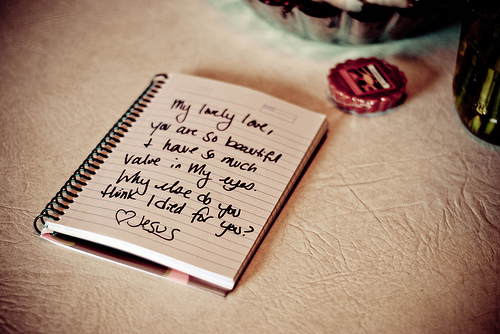 My lovely love,
you are so beautiful
& have so much
value in My eyes.
Why else do you
think I died for you?
♡ Jesus